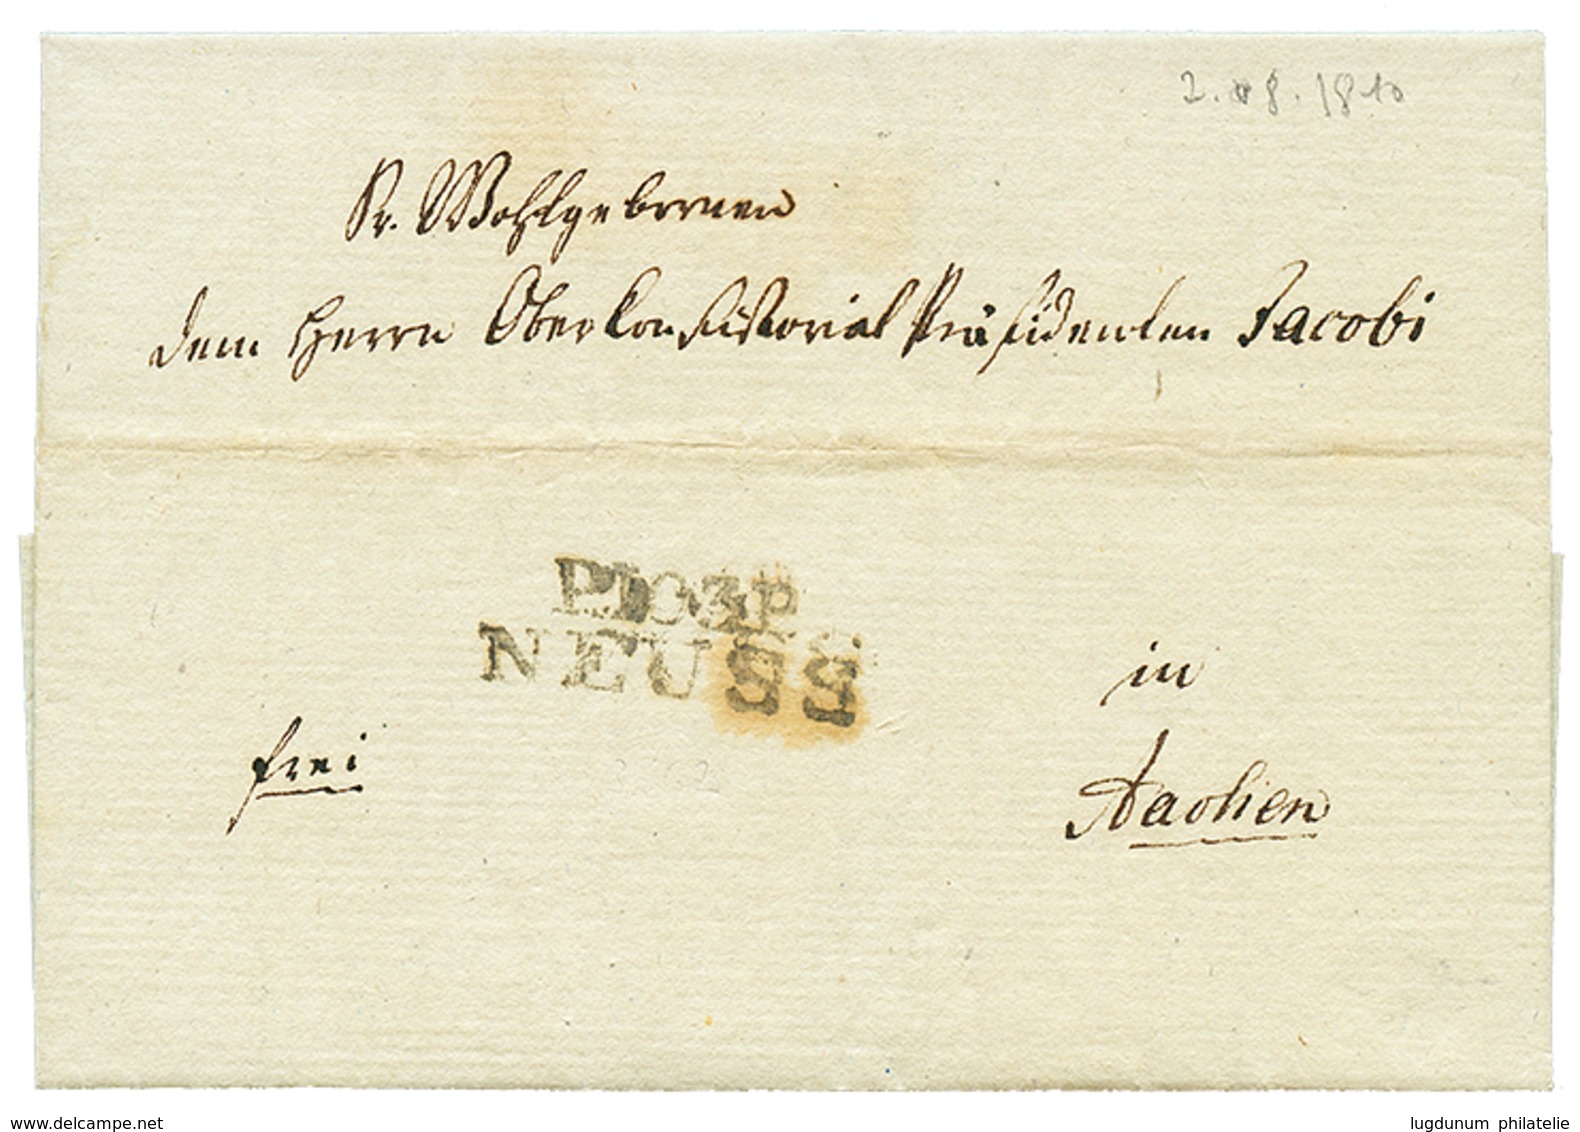 2. 8. 1810
Sr. Wohlgebornen
dem Herrn Oberkonsistorial Präsidenten Jacobi
P.103.P.
NEUSS
in
frei
Aachen
www.delcampe.net
lugdunum philatelie